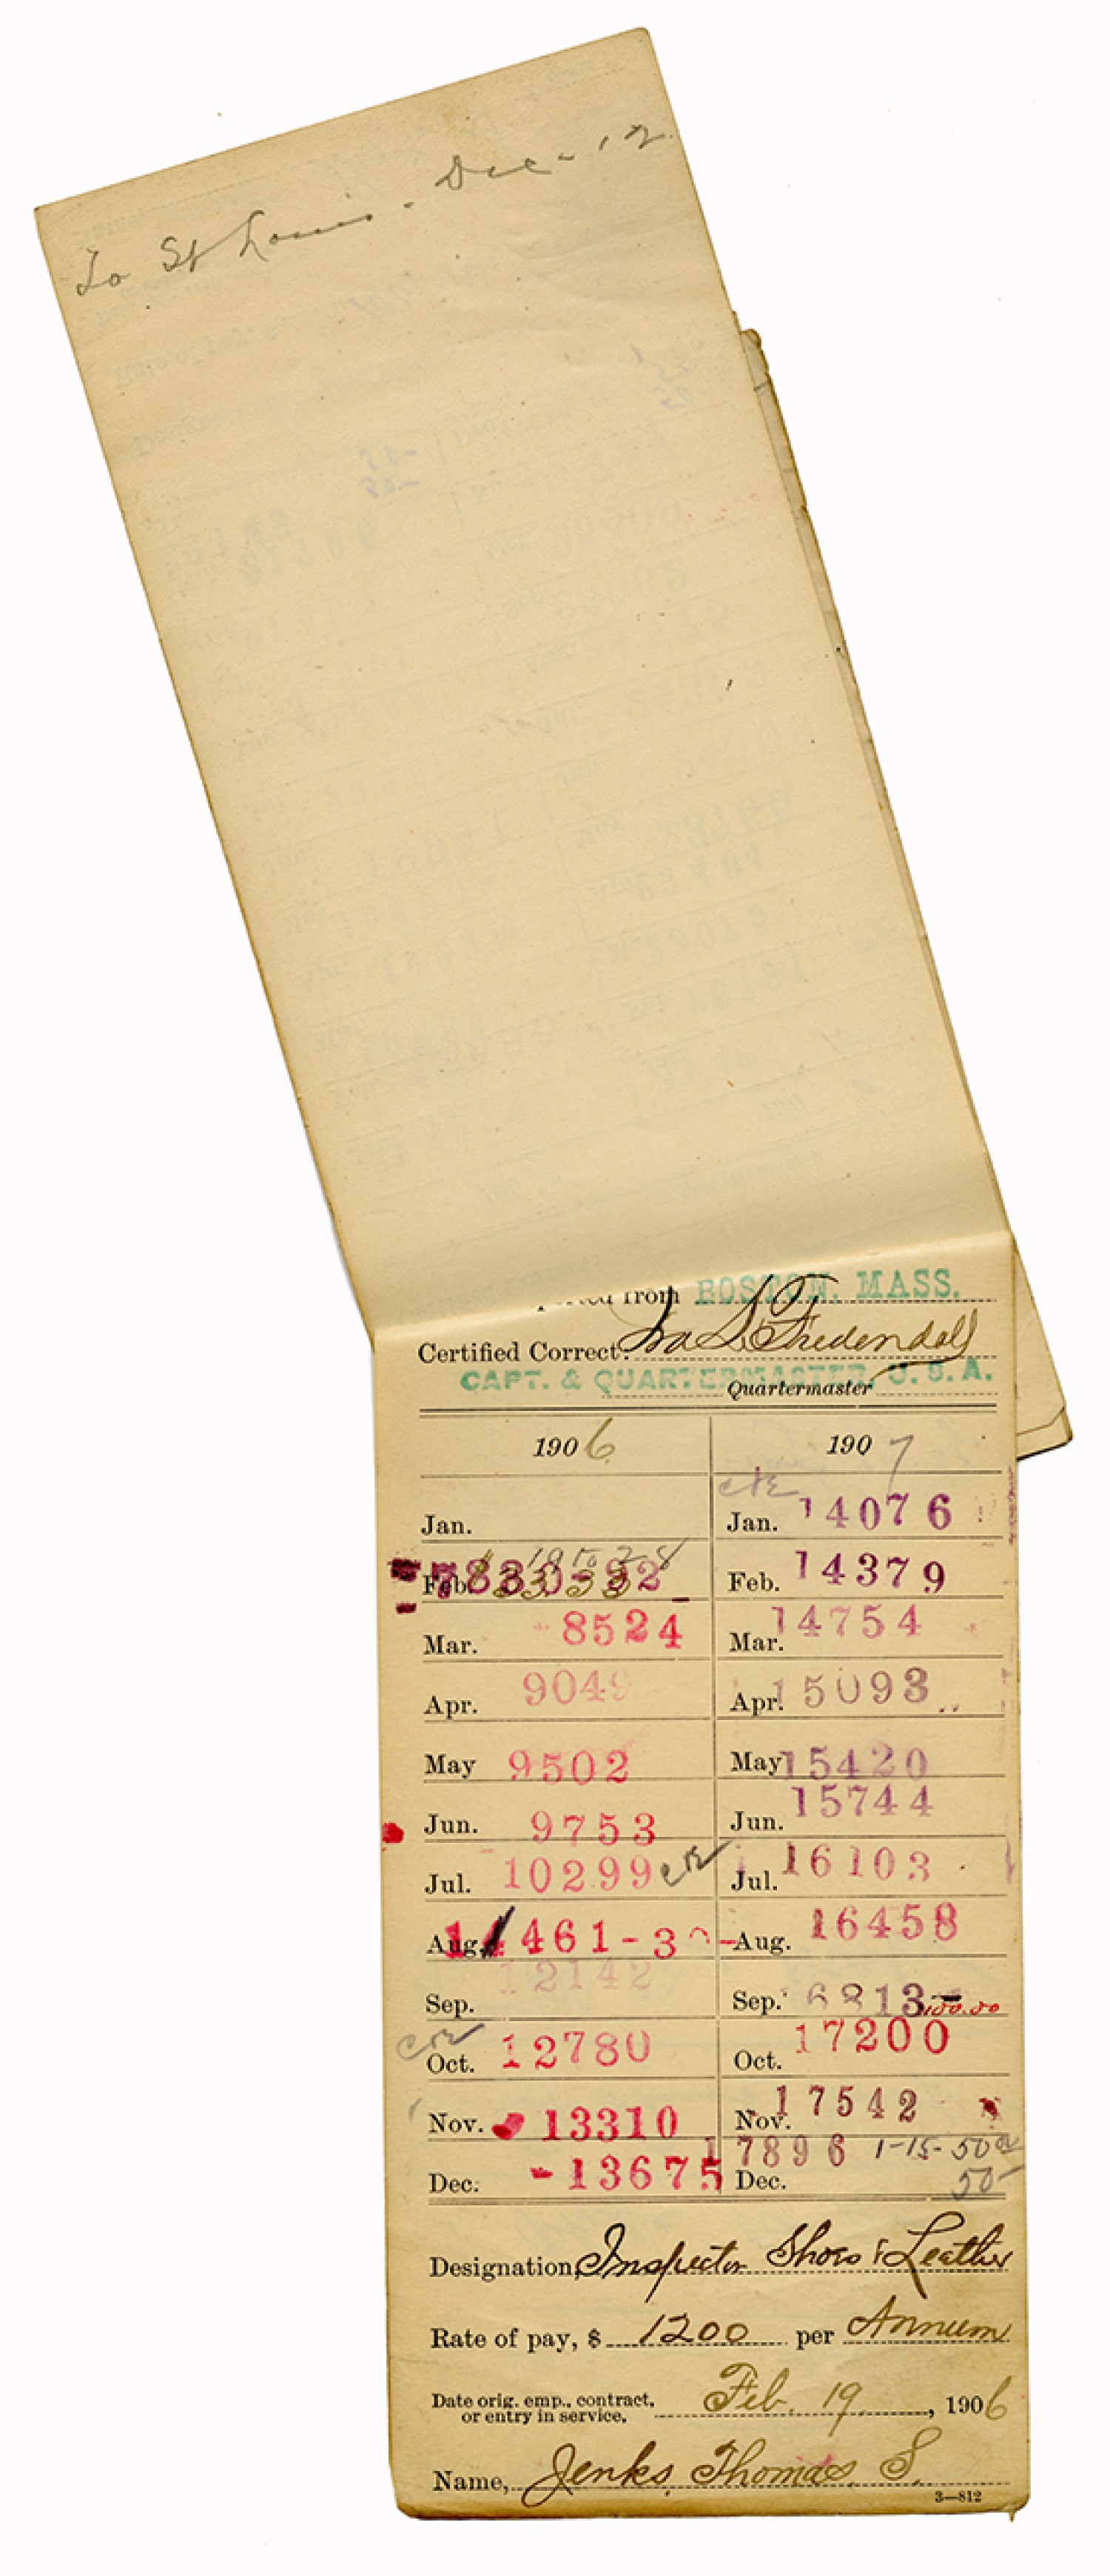 To St Louis - Dec - 12
from BOSTON, MASS.
Certified Correct: Ira L. Fredendall
CAPT. & QUARTERMASTER, U. S. A.
Quartermaster
1906 1907
Jan. Jan. 14076
Feb. 7830-92 $33.33 19 to 28 Feb. 14379
Mar. 8524 Mar. 14754
Apr. 9049 Apr. 15093
May 9502 May 15420
Jun. 9753 Jun. 15744
Jul. 10299 Jul. 16103
Aug. 461-30- Aug. 16458
Sep. 12142 Sep. 6813 100.00
Oct. 12780 Oct. 17200
Nov. 13310 Nov. 17542
Dec. 13675 Dec. 17896 1-15- 50
50
Designation, Inspector Shoes & Leather
Rate of pay, $ 1200 per Annum
Date orig. emp., contract, or entry in service, Feb. 19, 1906
Name, Jenks, Thomas, S.
3—812